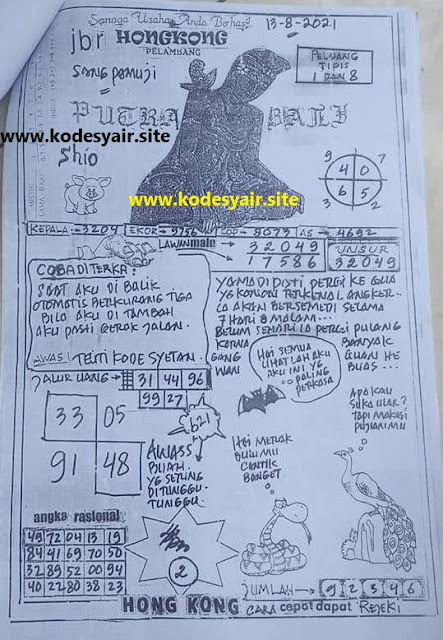 Semoga Usaha Anda Berhasil
13-8-2021
jbr HONGKONG
PELAMBANG
PELUANG
TIPIS
1 DAN 8
sang pamuji
PUTRA BALI
www.kodesyair.site
shio
4 0
6 5
www.kodesyair.site
KEPALA=3204 EKOR=9756 COP=8073 AS=4692
LAWAN main
32049
17586
UNSUR
32049
COBA DITERKA:
SAAT AKU DI BALIK
OTOMATIS BERKURANG TIGA
BILA AKU DI TAMBAH
AKU PASTI GERAK JALAN.
YAMADIPATI PERGI KE GUA
YG KONON TERKENAL ANGKER..
IA AKAN BERSEMEDI SELAMA
7 HARI 8 MALAM...
BELUM SEHARI IA PERGI PULANG
KARNA BANYAK
GANG GUAN HE
WAN BUAS...
AWAS! TELITI KODE SYETAN.
JALUR UANG 31 44 96
99 27
HAI SEMUA
LIHATLAH AKU
AKU INI YG
PALING
PERKASA
33 05
91 48
621
APA KAU
SUKA ULAR?
TAPI MAKASI
PUJIANMU
AWASS
BUAH
YG SERING
DITUNGGU-
TUNGGU.
HEI MERAK
BULUMU
CANTIK
BANGET
angka rasional
49 72 04 13 19
84 41 69 70 50
32 89 52 00 94
40 22 80 38 23
2
JUMLAH 9 2 3 4 6
HONG KONG CARA cepat dapat REJEKI